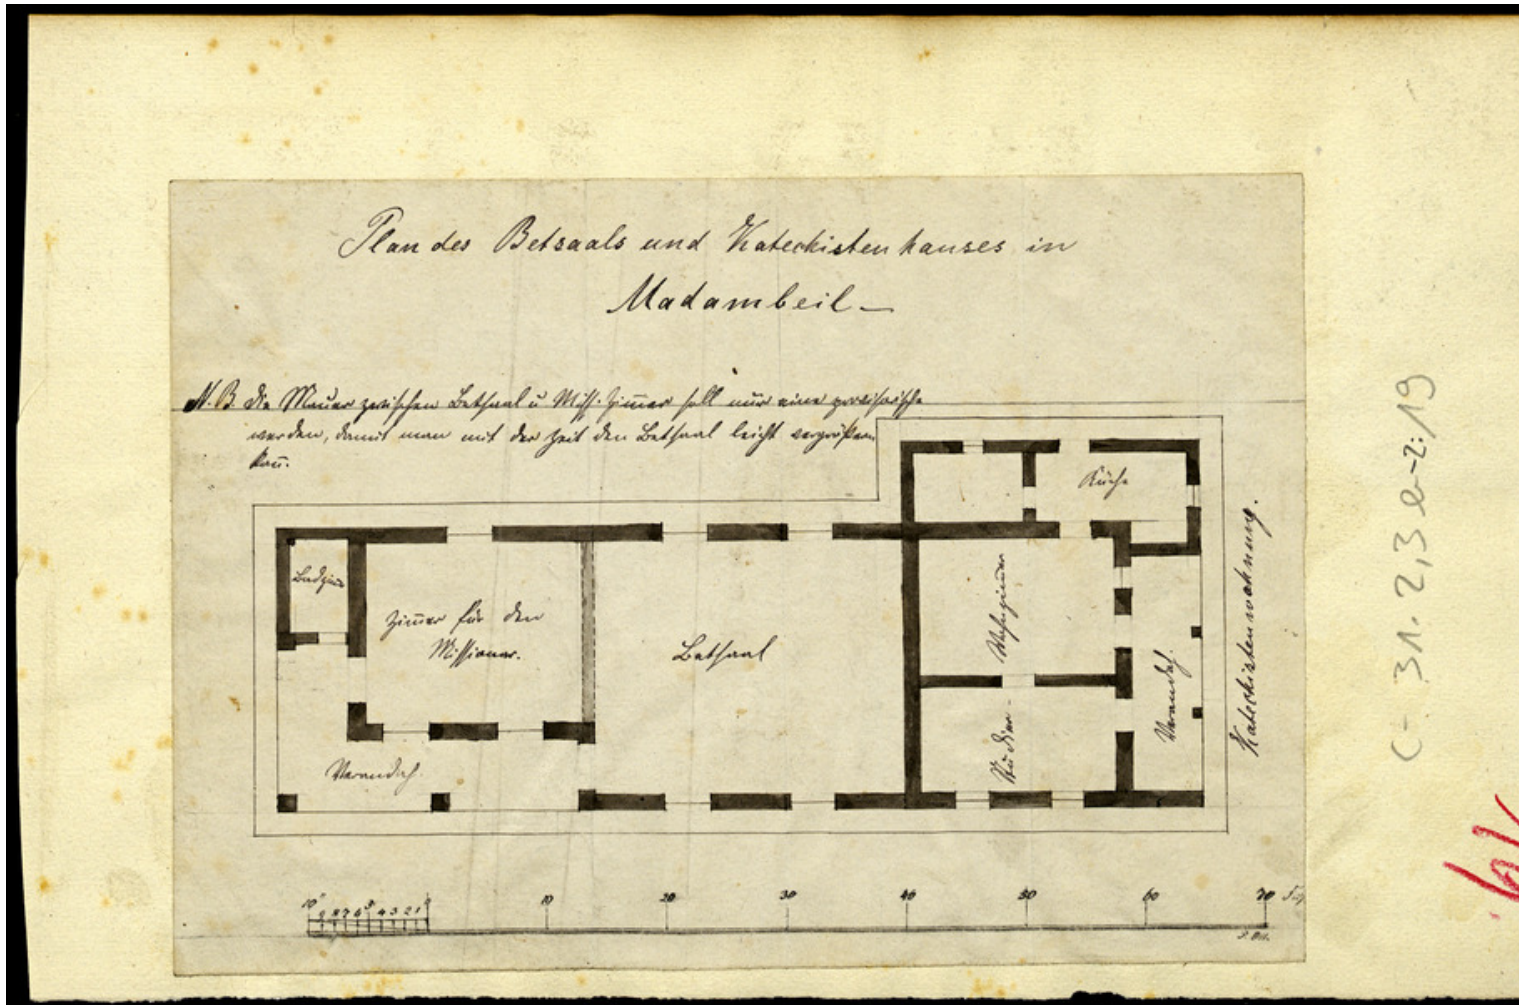 Plan des Betsaals und Katechistenhauses in
Madambeil –
N.B. die Mauer zwischen Betsaal u. Miss. Zim̅er soll nur eine provisorische
werden, damit man mit der Zeit den Betsaal leicht vergrößern
kan̅.
Küche
Badzim̅er
Zim̅er für den
Missionar.
Betsaal
Wohnzim̅er
Studier-
Verandah.
Verandah.
Katechistenwohnung.
10 9 8 7 6 5 4 3 2 1 0 10 20 30 40 50 60 70
C-31.2,3 19